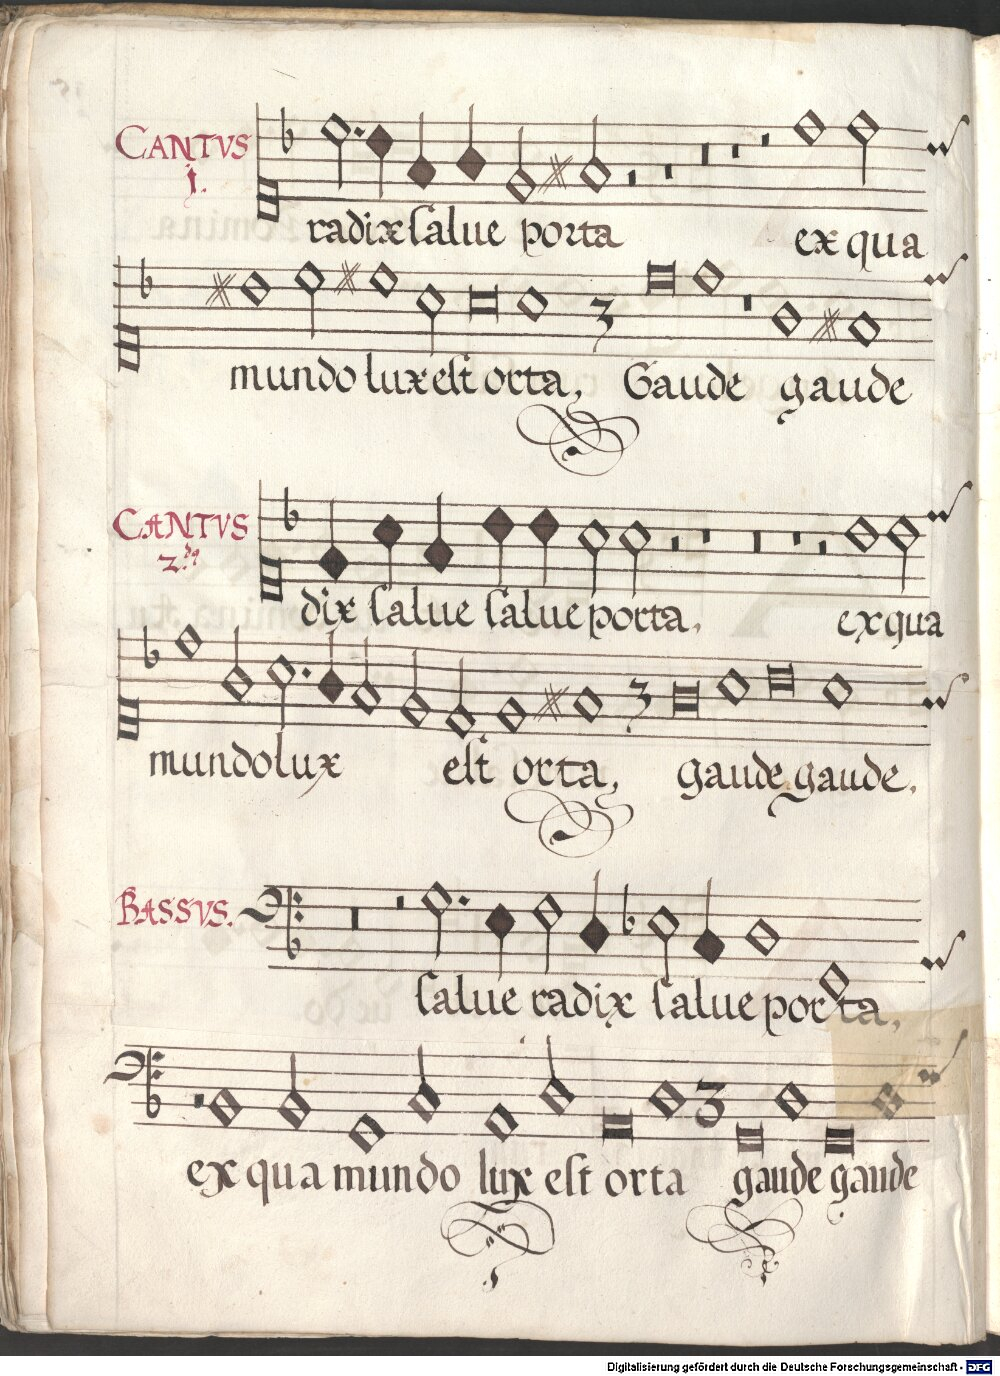 CANTVS
1.
radix salue porta ex qua
mundo lux est orta, Gaude gaude
CANTVS
2.
dix salue salue porta, ex qua
mundo lux est orta, gaude gaude.
BASSVS.
salue radix salue porta,
ex qua mundo lux est orta gaude gaude
Digitalisierung gefördert durch die Deutsche Forschungsgemeinschaft - DFG